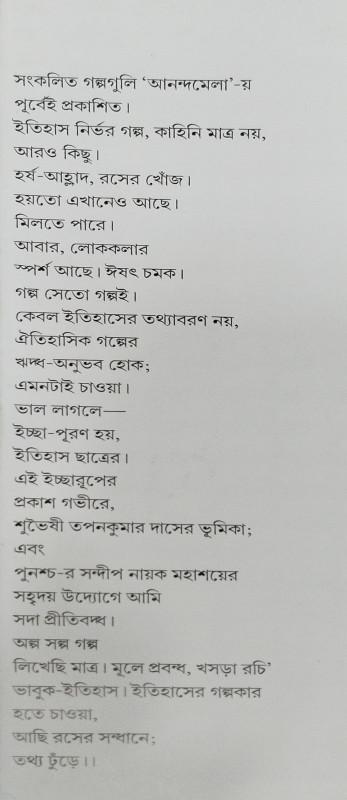 সংকলিত গল্পগুলি ‘আনন্দমেলা’-য়
পূর্বেই প্রকাশিত।
ইতিহাস নির্ভর গল্প, কাহিনি মাত্র নয়,
আরও কিছু।
হর্ষ-আহ্লাদ, রসের খোঁজ।
হয়তো এখানেও আছে।
মিলতে পারে।
আবার, লোককলার
স্পর্শ আছে। ঈষৎ চমক।
গল্প সেতো গল্পই।
কেবল ইতিহাসের তথ্যাবরণ নয়,
ঐতিহাসিক গল্পের
ঋদ্ধ-অনুভব হোক;
এমনটাই চাওয়া।
ভাল লাগলে—
ইচ্ছা-পূরণ হয়,
ইতিহাস ছাত্রের।
এই ইচ্ছারূপের
প্রকাশ গভীরে,
শুভৈষী তপনকুমার দাসের ভূমিকা;
এবং
পুনশ্চ-র সন্দীপ নায়ক মহাশয়ের
সহৃদয় উদ্যোগে আমি
সদা প্রীতিবদ্ধ।
অল্প সল্প গল্প
লিখেছি মাত্র। মূলে প্রবন্ধ, খসড়া রচি’
ভাবুক-ইতিহাস। ইতিহাসের গল্পকার
হতে চাওয়া,
আছি রসের সন্ধানে;
তথ্য ঢুঁড়ে।।